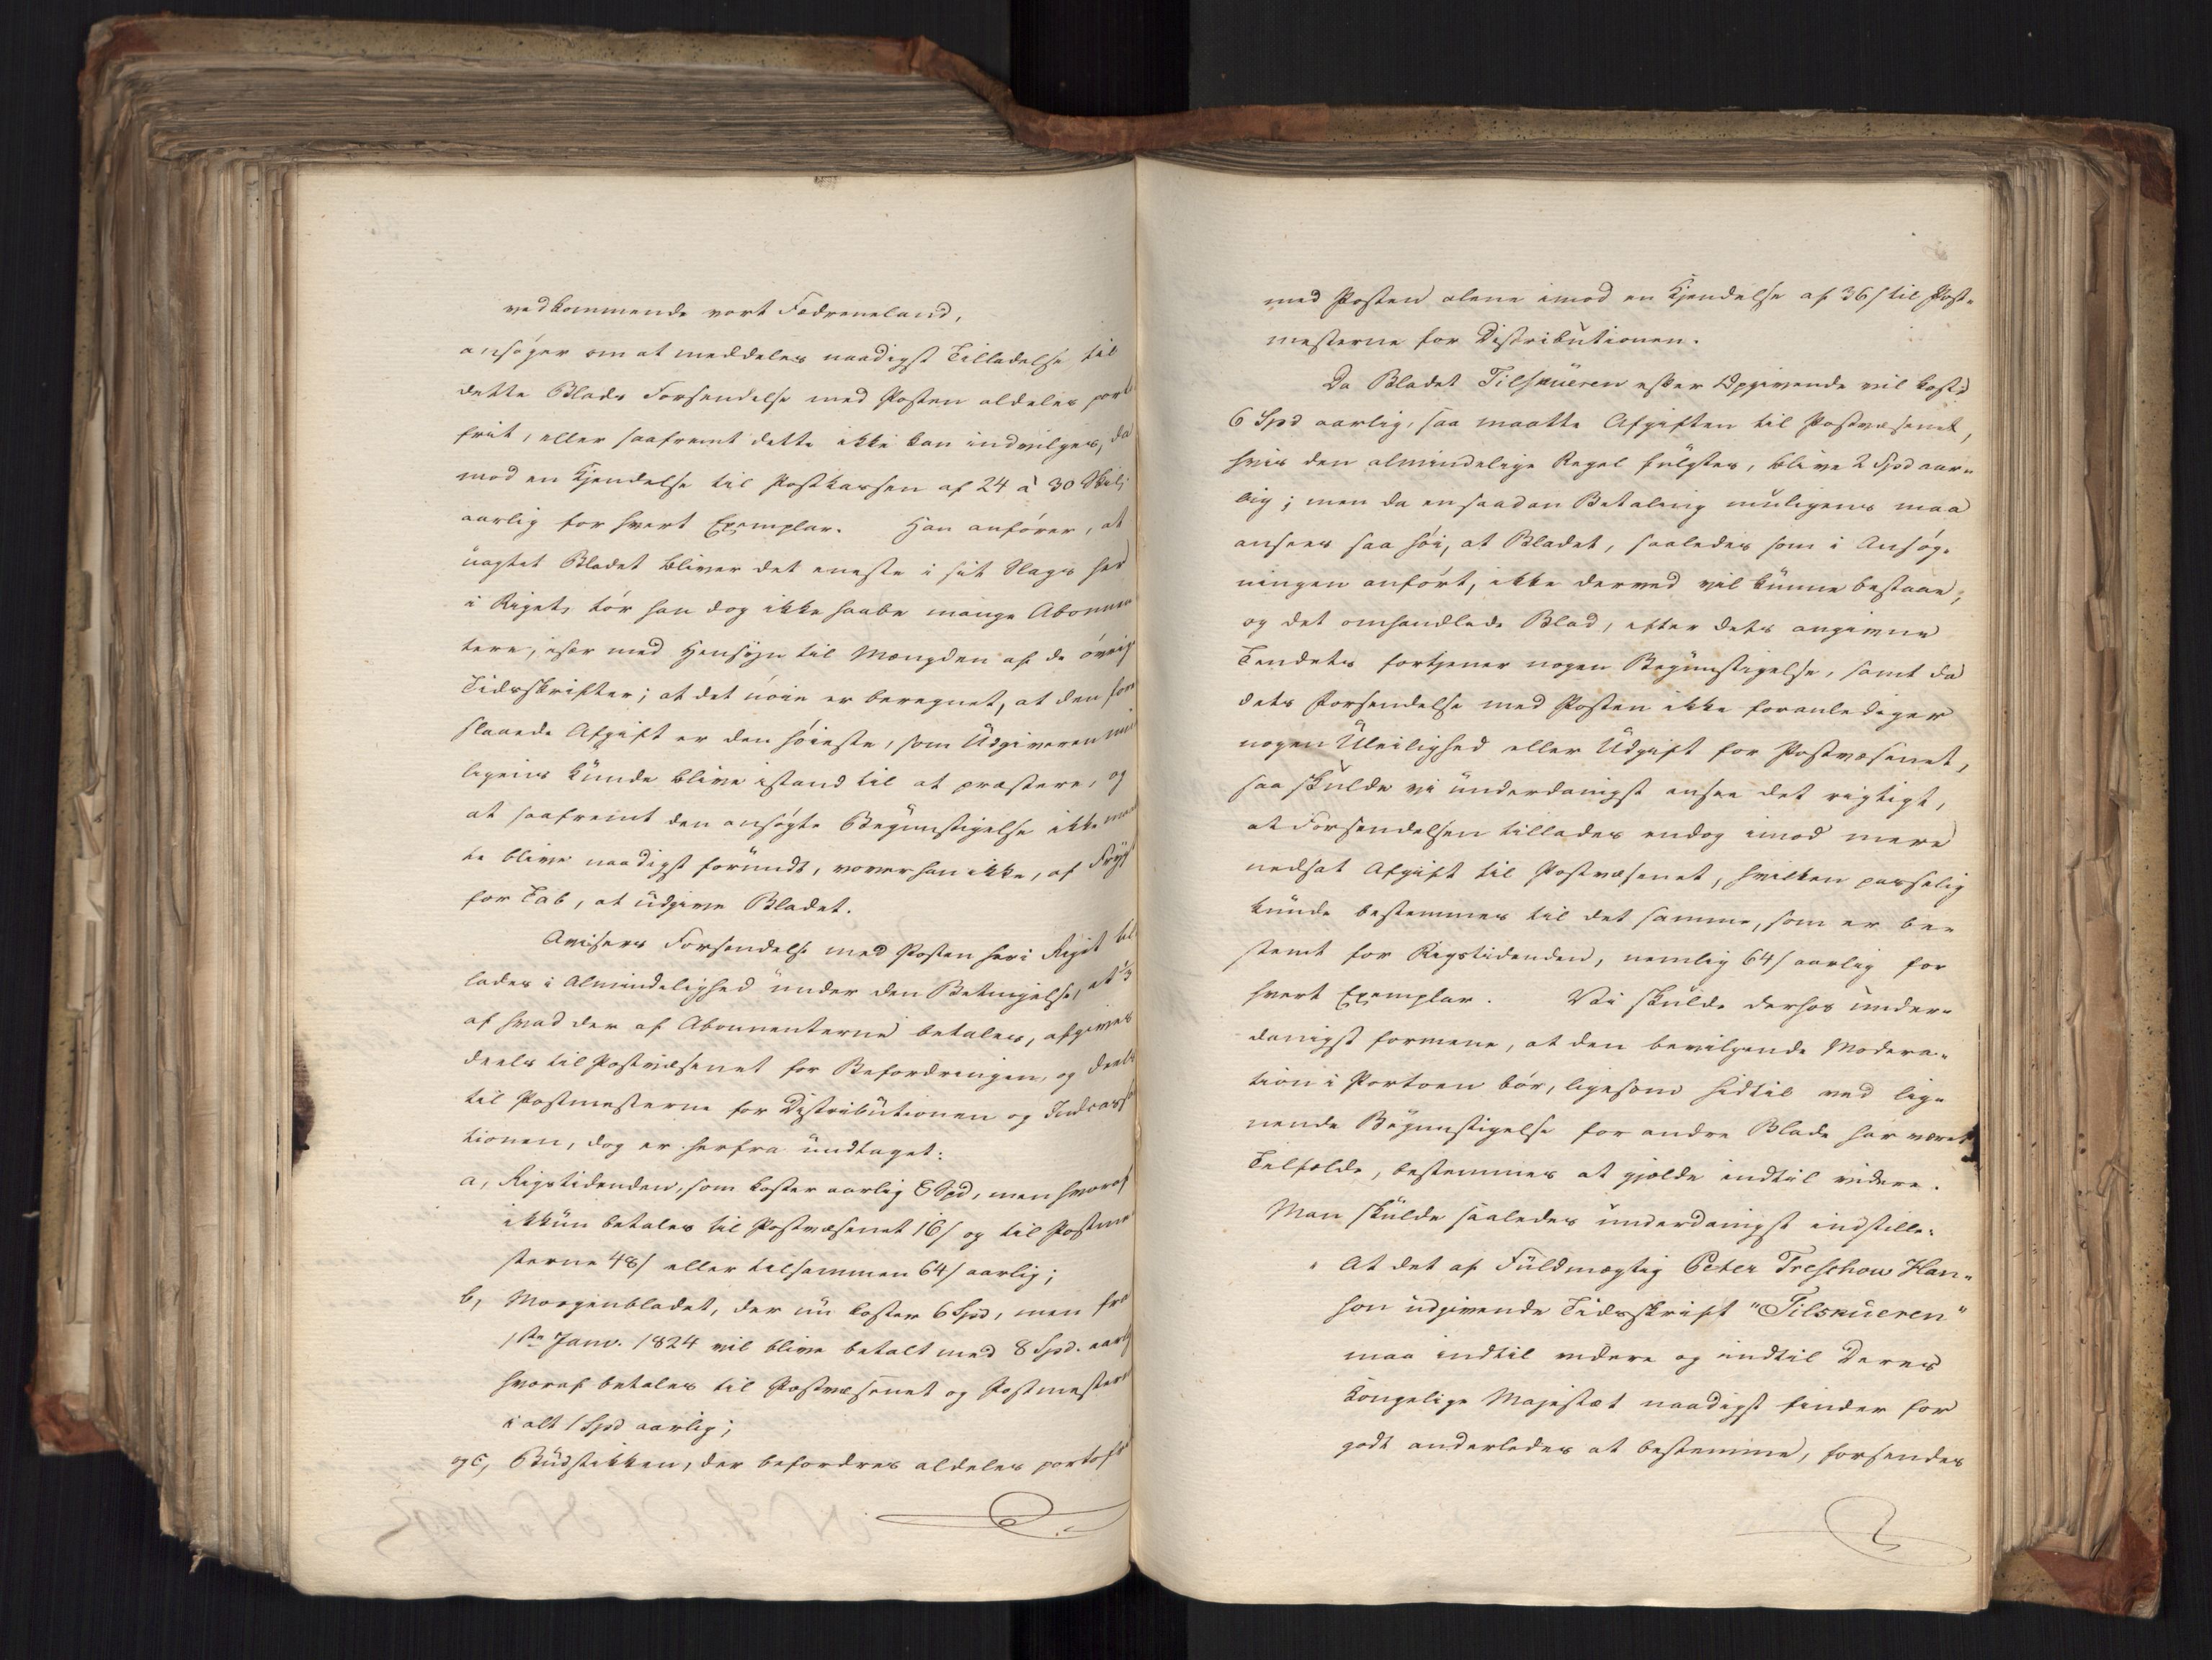 vedkommende vort Fædreneland,
ansøger om at meddeles naadigst Tilladelse til
dette Blads Forsendelse med Posten aldeles porto
frit, eller saafremt dette ikke kan indvilges, da
mod en Kjendelse til Postkassen af 24 à 30 Skil:
aarlig for hvert Exemplar. Han anfører, at
uagtet Bladet bliver det eneste i sit Slags her
i Riget, tør han dog ikke haabe mange Abonnen
tere, især med Hensyn til Mængden af de øvrige
Tidsskrifter; at det nøie er beregnet, at den fore
slaaede Afgift er den høieste, som Udgiveren mu
ligviis kunde blive istand til at præstere, og
at saafremt den ansøgte Begunstigelse ikke maat
te blive naadigst forundt, vover han ikke, af Frygt
for Tab, at udgive Bladet.
Avisers Forsendelse med Posten her i Riget til
lades i Almindelighed under den Betingelse, at 1/3
af hvad der af Abonnenterne betales, afgives
deels til Postvæsenet for Befordringen, og deels
til Postmesterne for Distributionen og Indcassa
tionen, dog er herfra undtaget:
a, Rigstidenden, som koster aarlig 6 Spd, men hvoraf
ikkun betales til Postvæsenet 16 s og til Postme
sterne 48 s eller tilsammen 64 s aarlig;
b, Morgenbladet, der nu koster 6 Spd, men fra
1ste Janv. 1824 vil blive betalt med 8 Spd. aarlig
hvoraf betales til Postvæsenet og Postmesterne
i alt 1 Spd aarlig;
og c, Budstikken, der befordres aldeles portofri
med Posten alene imod en Kjendelse af 36 s til Post-
mesterne for Distributionen.
Da Bladet Tilskueren efter Opgivende vil koste
6 Spd aarlig, saa maatte Afgiften til Postvæsenet,
hvis den almindelige Regel fulgtes, blive 2 Spd aar-
lig; men da en saadan Betaling muligens maa
ansees saa høi, at Bladet, saaledes som i Ansøg-
ningen anført, ikke derved vil kunne bestaae,
og det omhandlede Blad, efter dets angivne
Tendets fortjener nogen Begunstigelse, samt da
dets Forsendelse med Posten ikke foranlediger
nogen Uleilighed eller Udgift for Postvæsenet,
saa skulde vi underdanigst ansee det rigtigt,
at Forsendelsen tillades endog imod mere
nedsat Afgift til Postvæsenet, hvilken passelig
kunde bestemmes til det samme, som er be-
stemt for Rigstidenden, nemlig 64 s aarlig for
hvert Exemplar. Vi skulde derhos under-
danigst formene, at den bevilgende Modera-
tion i Portoen bør, ligesom hidtil ved lig-
nende Begunstigelse for andre Blade har været
Tilfælde, bestemmes at gjælde indtil videre.
Man skulde saaledes underdanigst indstille:
At det af Fuldmægtig Peter Treschow Han-
son udgivende Tidsskrift "Tilskueren"
maa indtil videre og indtil Deres
Kongelige Majestæt naadigst finder for
godt anderledes at bestemme, forsendes